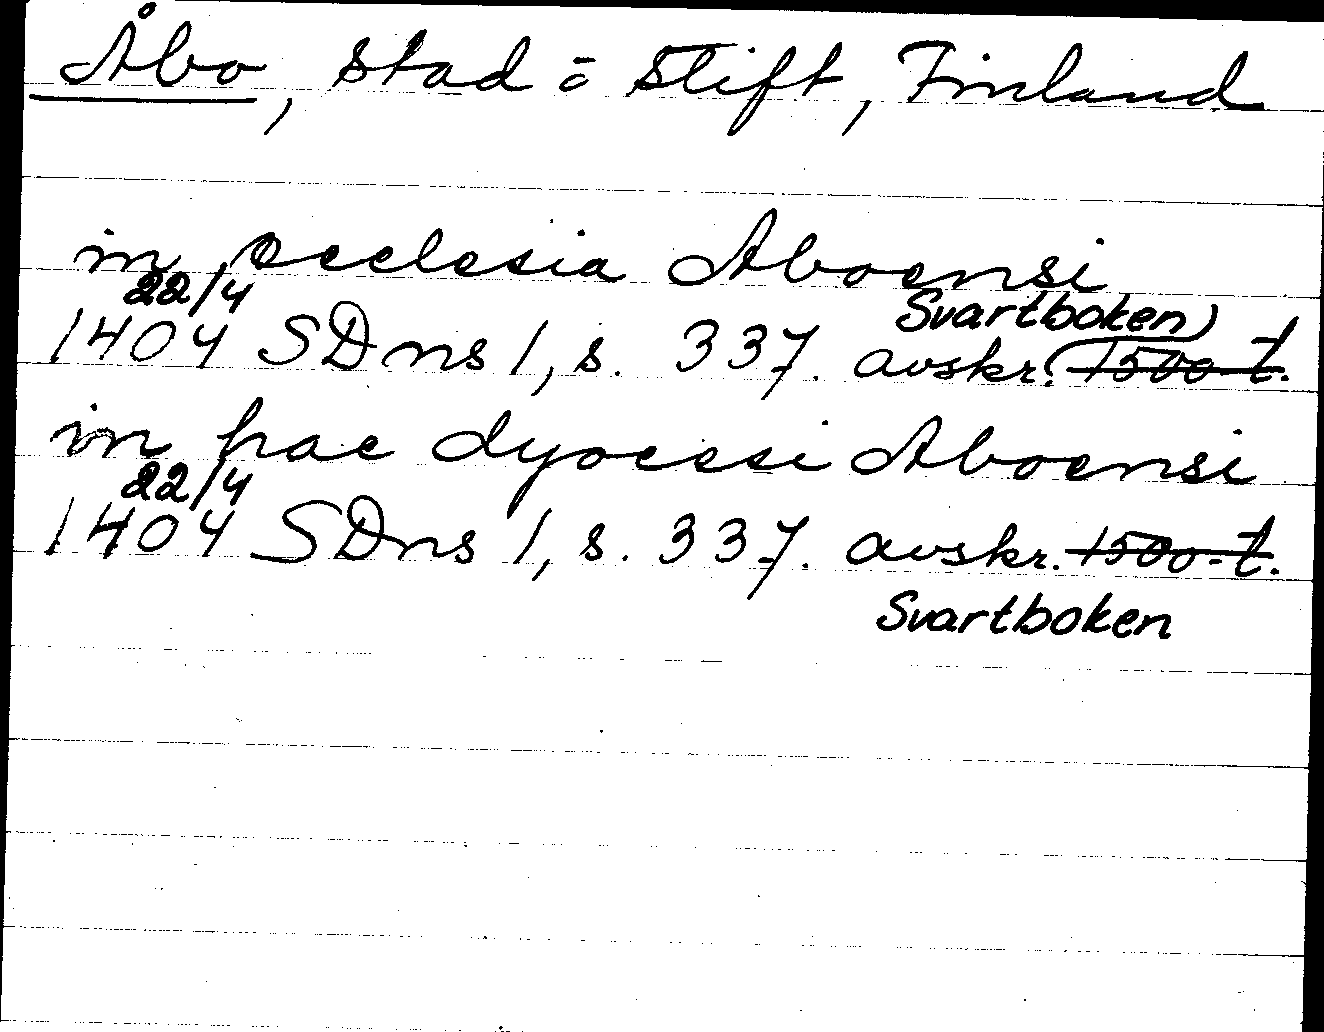 Åbo, stad o stift, Finland
in ecclesia Aboensi
22/4 Svartboken)
1404 SDns 1, s. 337. avskr. (1500-t.
in hac dyocesi Aboensi
22/4
1404 SDns 1, s. 337. avskr. 1500-t.
Svartboken